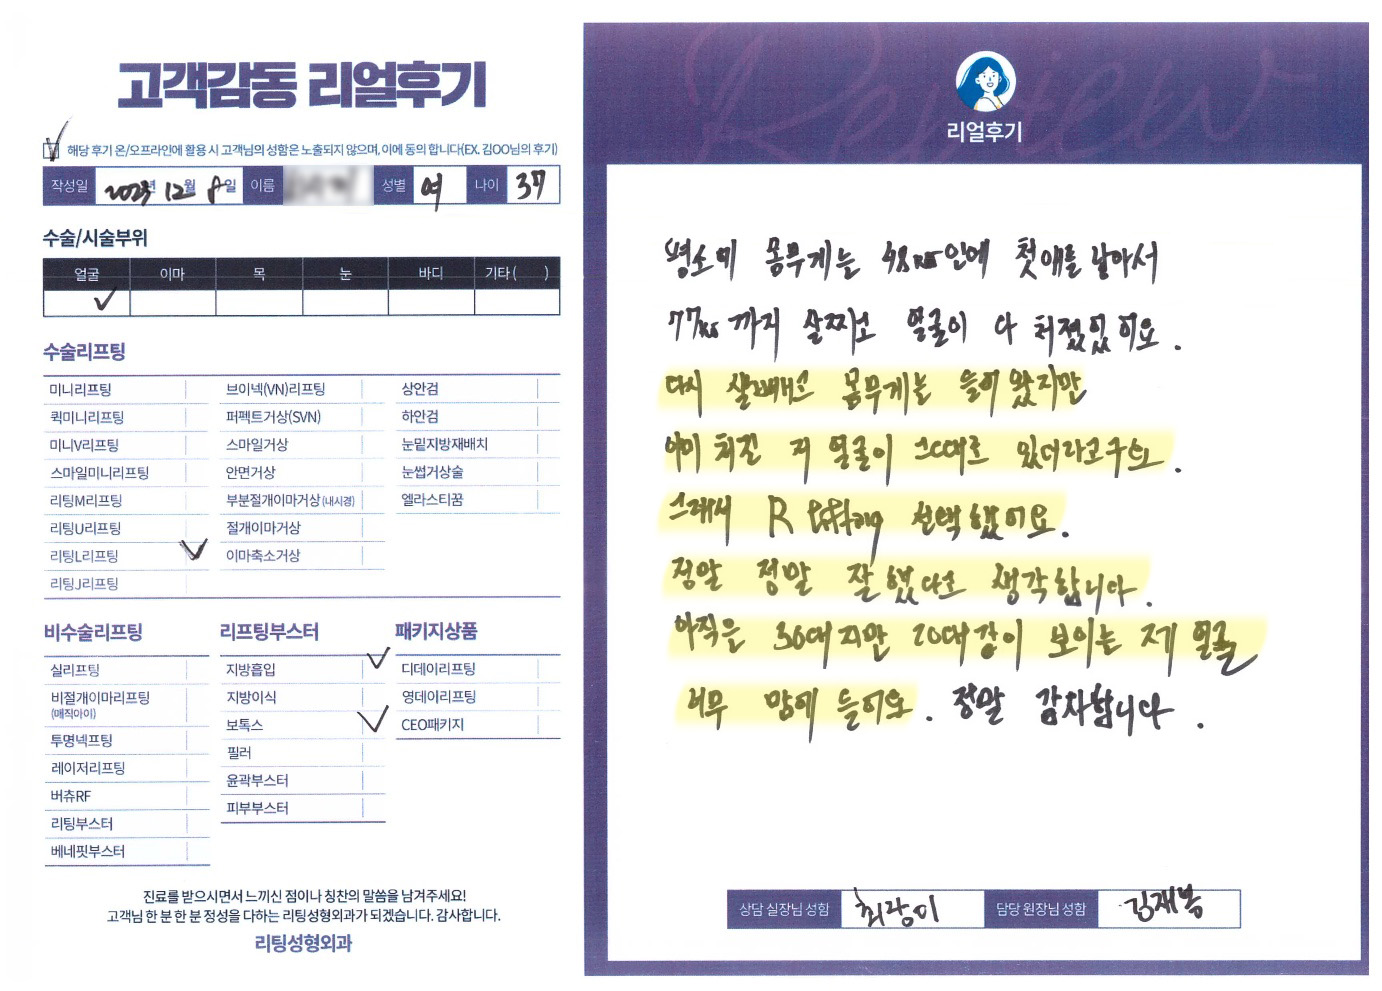 고객감동 리얼후기
해당 후기 온/오프라인에 활용 시 고객님의 성함은 노출되지 않으며, 이에 동의 합니다(EX. 김OO님의 후기)
작성일 2023년 12월 8일 이름 성별 여 나이 37
수술/시술부위
얼굴 이마 목 눈 바디 기타 ( )
수술리프팅
미니리프팅 브이넥(VN)리프팅 상안검
퀵미니리프팅 퍼펙트거상(SVN) 하안검
미니V리프팅 스마일거상 눈밑지방재배치
스마일미니리프팅 안면거상 눈썹거상술
리팅M리프팅 부분절개이마거상 (내시경) 엘라스티꿈
리팅U리프팅 절개이마거상
리팅L리프팅 이마축소거상
리팅J리프팅
비수술리프팅 리프팅부스터 패키지상품
실리프팅 지방흡입 디데이리프팅
비절개이마리프팅 지방이식 영데이리프팅
(매직아이)
보톡스 CEO패키지
투명넥프팅 필러
레이저리프팅 윤곽부스터
버츄RF 피부부스터
리팅부스터
베네핏부스터
진료를 받으시면서 느끼신 점이나 칭찬의 말씀을 남겨주세요!
고객님 한 분 한 분 정성을 다하는 리팅성형외과가 되겠습니다. 감사합니다.
리팅성형외과
Review
리얼후기
평소에 몸무게는 48kg인에 첫애를 낳아서
77kg까지 살찌고 얼굴이 다 처졌있어요.
다시 살빼고 몸무게는 돌아왔지만
이미 처진 저 얼굴이 그대로 있더라고구요.
그래서 R lifting 선택했어요.
정말 정말 잘했다고 생각합니다.
아직은 30대지만 20대같이 보이는 제 얼굴
너무 맘에 들어요. 정말 감사합니다.
상담 실장님 성함 최광미 담당 원장님 성함 김재봉